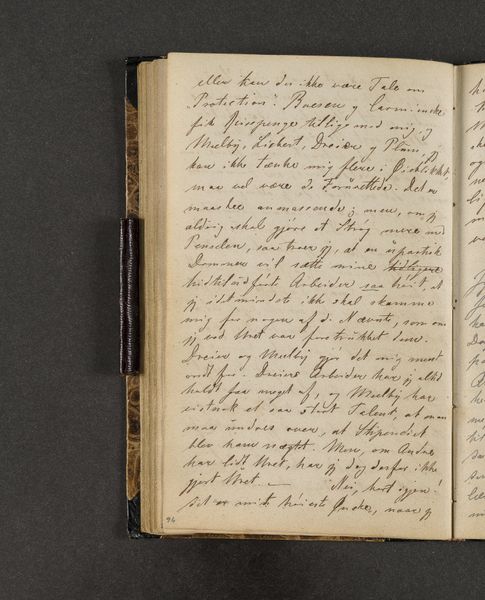 eller kan der ikke være Tale om
Protection! Boesen og Carmiencke
fik Reisepenge tilligemed mig, og
Melby, Libert, Dreier og Plum, jeg
kan ikke tænke mig flere i Øieblikket
maa vel være de Forurettede. Det er
maaskee anmassende; men, om jeg
aldrig skal gjøre et Strøg mere med
Penselen, saa troer jeg, at en upartisk
Dommer vil sætte mine tidligere
hidtil udførte Arbeider saa høit, at
jeg idetmindste ikke skal skamme
mig for nogen af de Nævnte, som om
jeg ved Uret var foretrukket dem.
Dreier og Melby gjør det mig meest
ondt for. Dreiers Arbeider har jeg altid
holdt saa meget af, og Melby har
vistnok et saa stort Talent, at man
maa undres over, at Stipendiet
blev ham nægtet. Men, om Andre
har lidt Uret, har jeg dog derfor ikke
gjort Uret. – Nei, bort igjen!
det er mit høieste Ønske, naar jeg
94